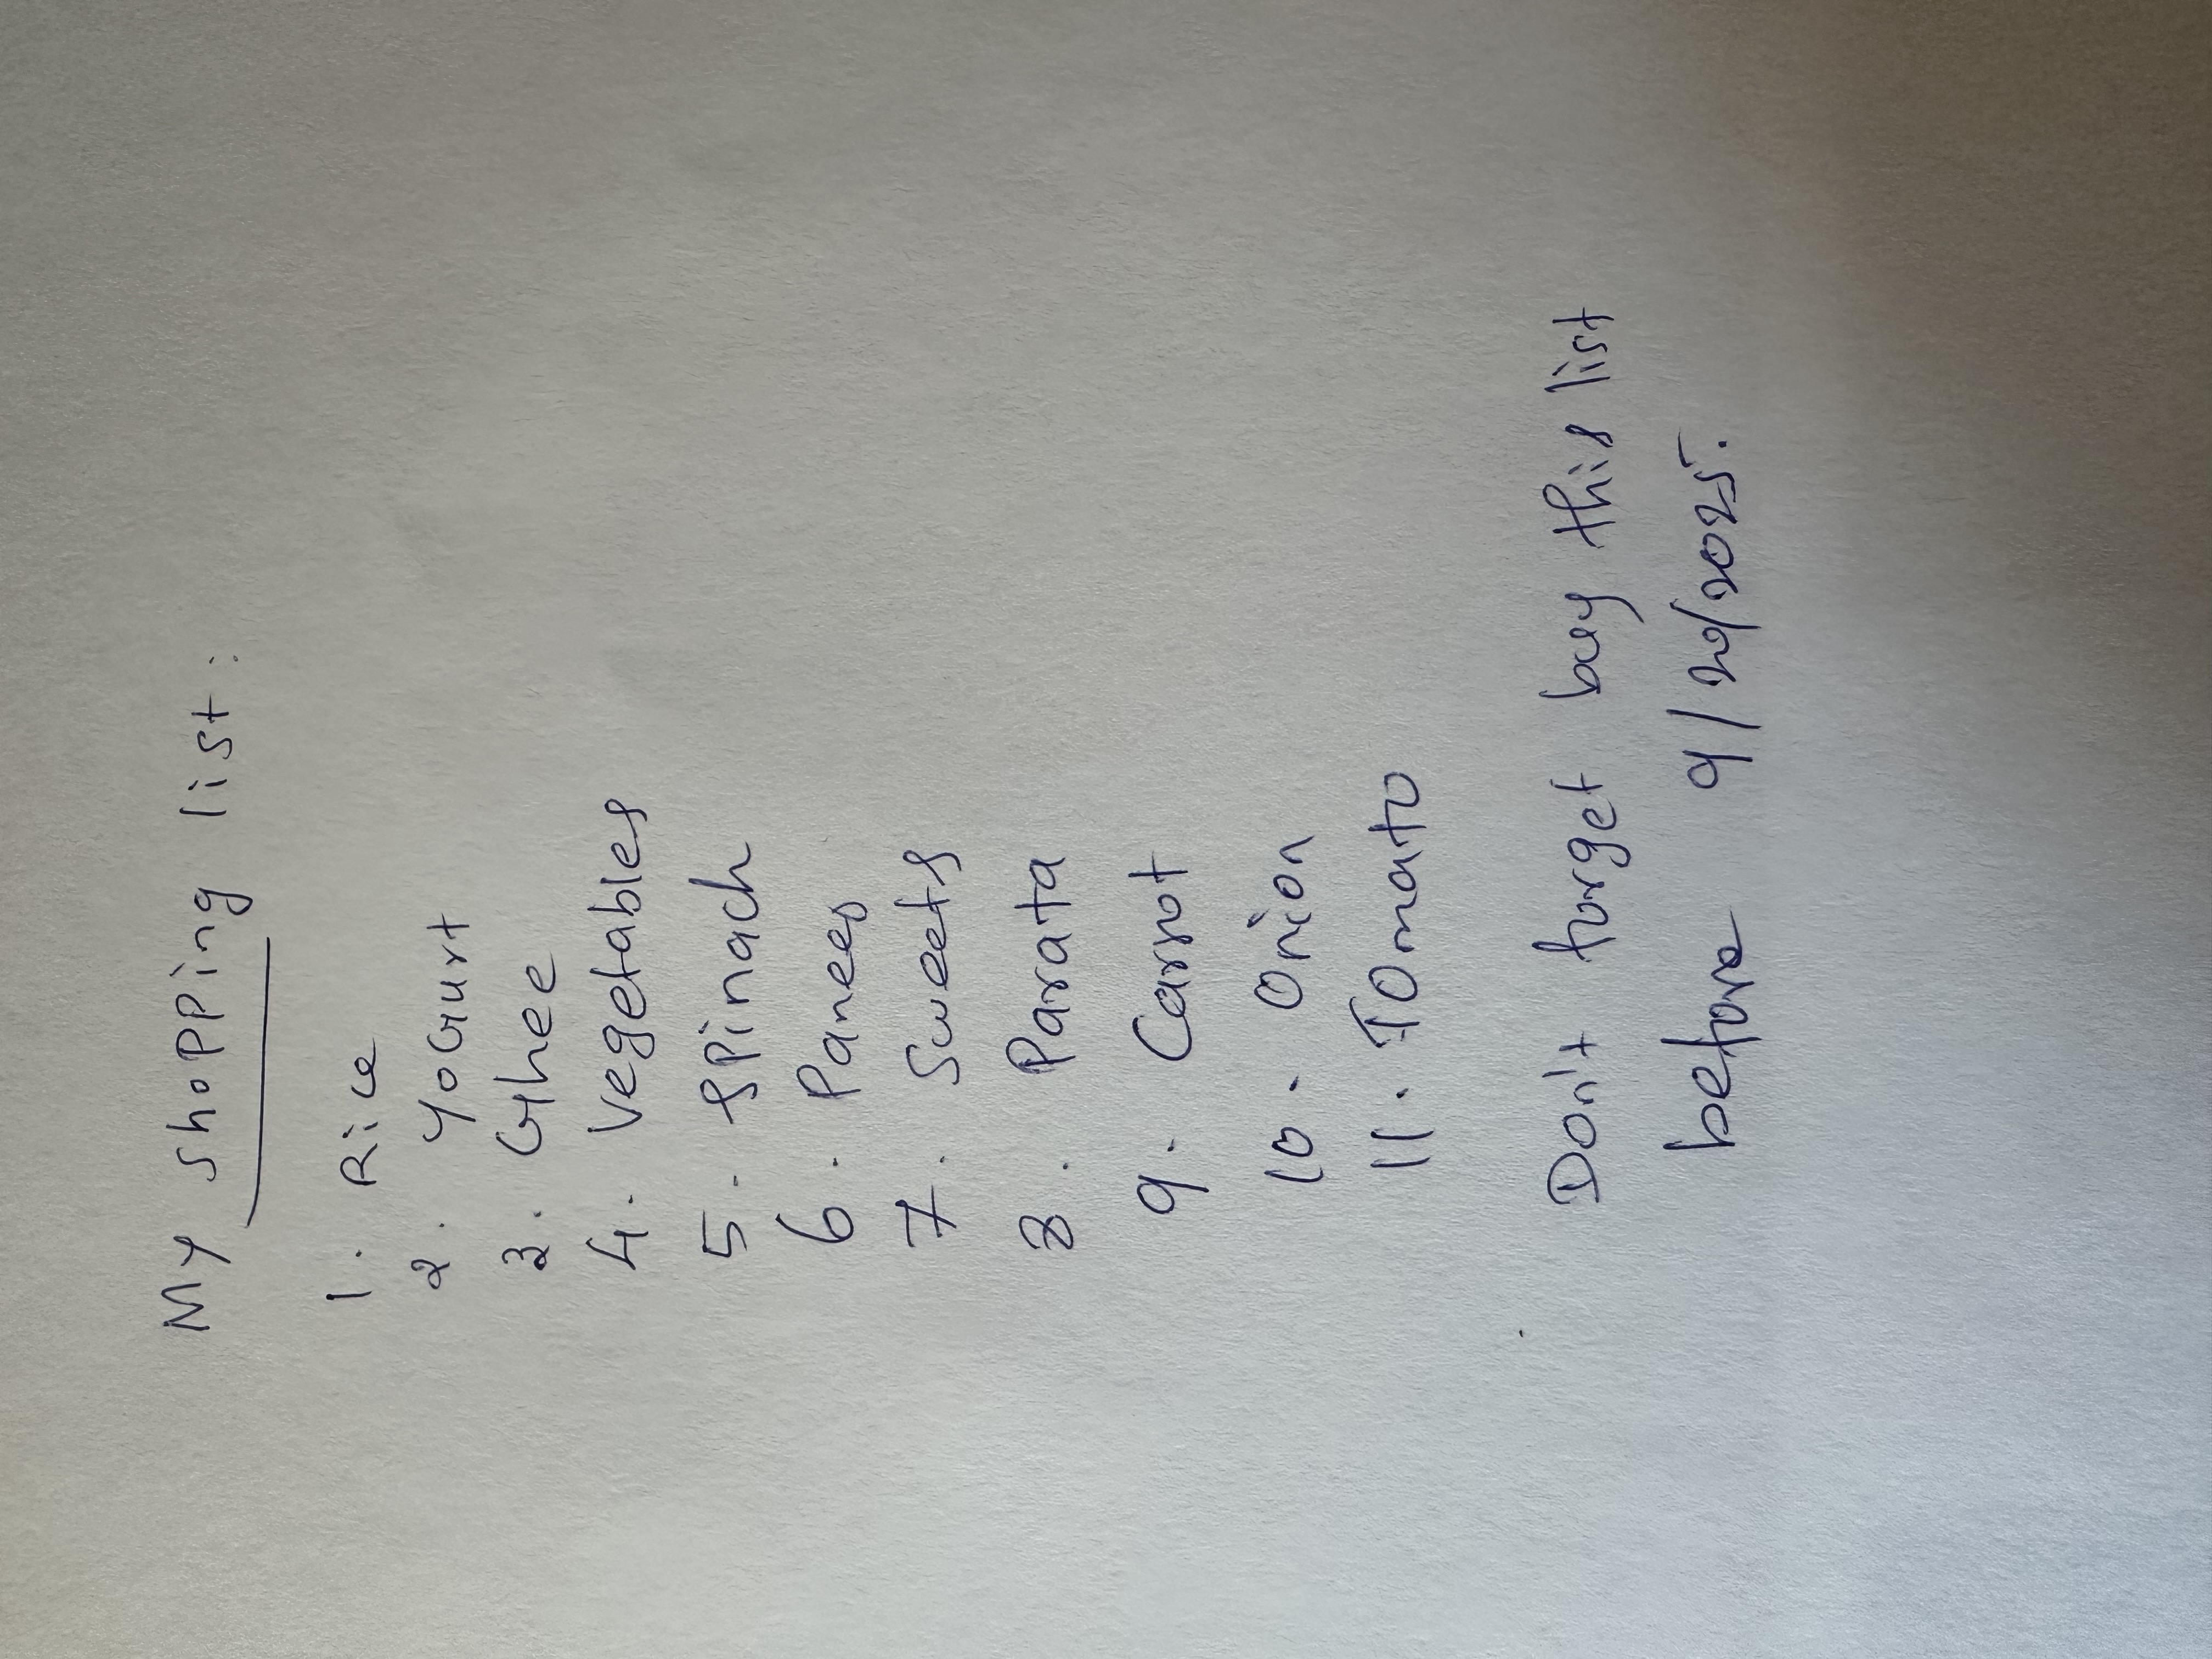 My shopping list:
1. Rice
2. YoGurt
3. Ghee
4. Vegetables
5. Spinach
6. Paneer
7. Sweets
8. Parata
9. Carrot
10. Onion
11. TOmato
Don't forget buy this list
before 9/20/2025.